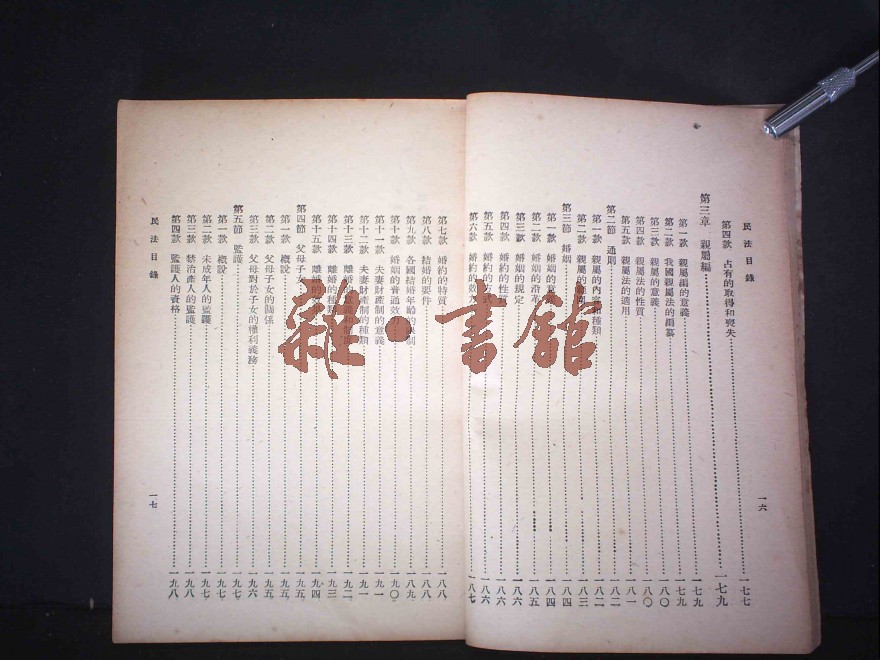 民法目錄
第四款 占有的取得和喪失 一七七
第三章 親屬編 一七九
第一款 親屬編的意義 一七九
第二款 我國親屬法的編纂 一八〇
第三款 親屬的意義
第四款 親屬法的性質 一八〇
第五款 親屬法的適用 一八一
第二節 通則 一八二
第一款 親屬的內容和種類 一八二
第二款 親屬的 一八三
第三節 婚姻 一八四
第一款 婚姻的意義 一八四
第二款 婚姻的沿革 一八五
第三款 婚約的規定 一八六
第四款 婚約的性質 一八六
第五款 婚約的 式 一八六
第六款 婚約的效力 一八七
一六
第七款 婚約的特質 一八八
第八款 結婚的要件 一八八
第九款 各國結婚年齡的限制 一八九
第十款 婚姻的普通效力 一九〇
第十一款 夫妻財產制的意義 一九一
第十二款 夫妻財產制的種類 一九一
第十三款 離婚的意義和制度 一九二
第十四款 離婚的種類 一九三
第十五款 離婚的 一九四
第四節 父母子女 一九五
第一款 概說 一九五
第二款 父母子女的關係 一九五
第三款 父母對於子女的權利義務 一九六
第五節 監護 一九七
第一款 概說 一九七
第二款 未成年人的監護 一九七
第三款 禁治產人的監護 一九八
第四款 監護人的資格 一九八
民法目錄
一七
雜·書館